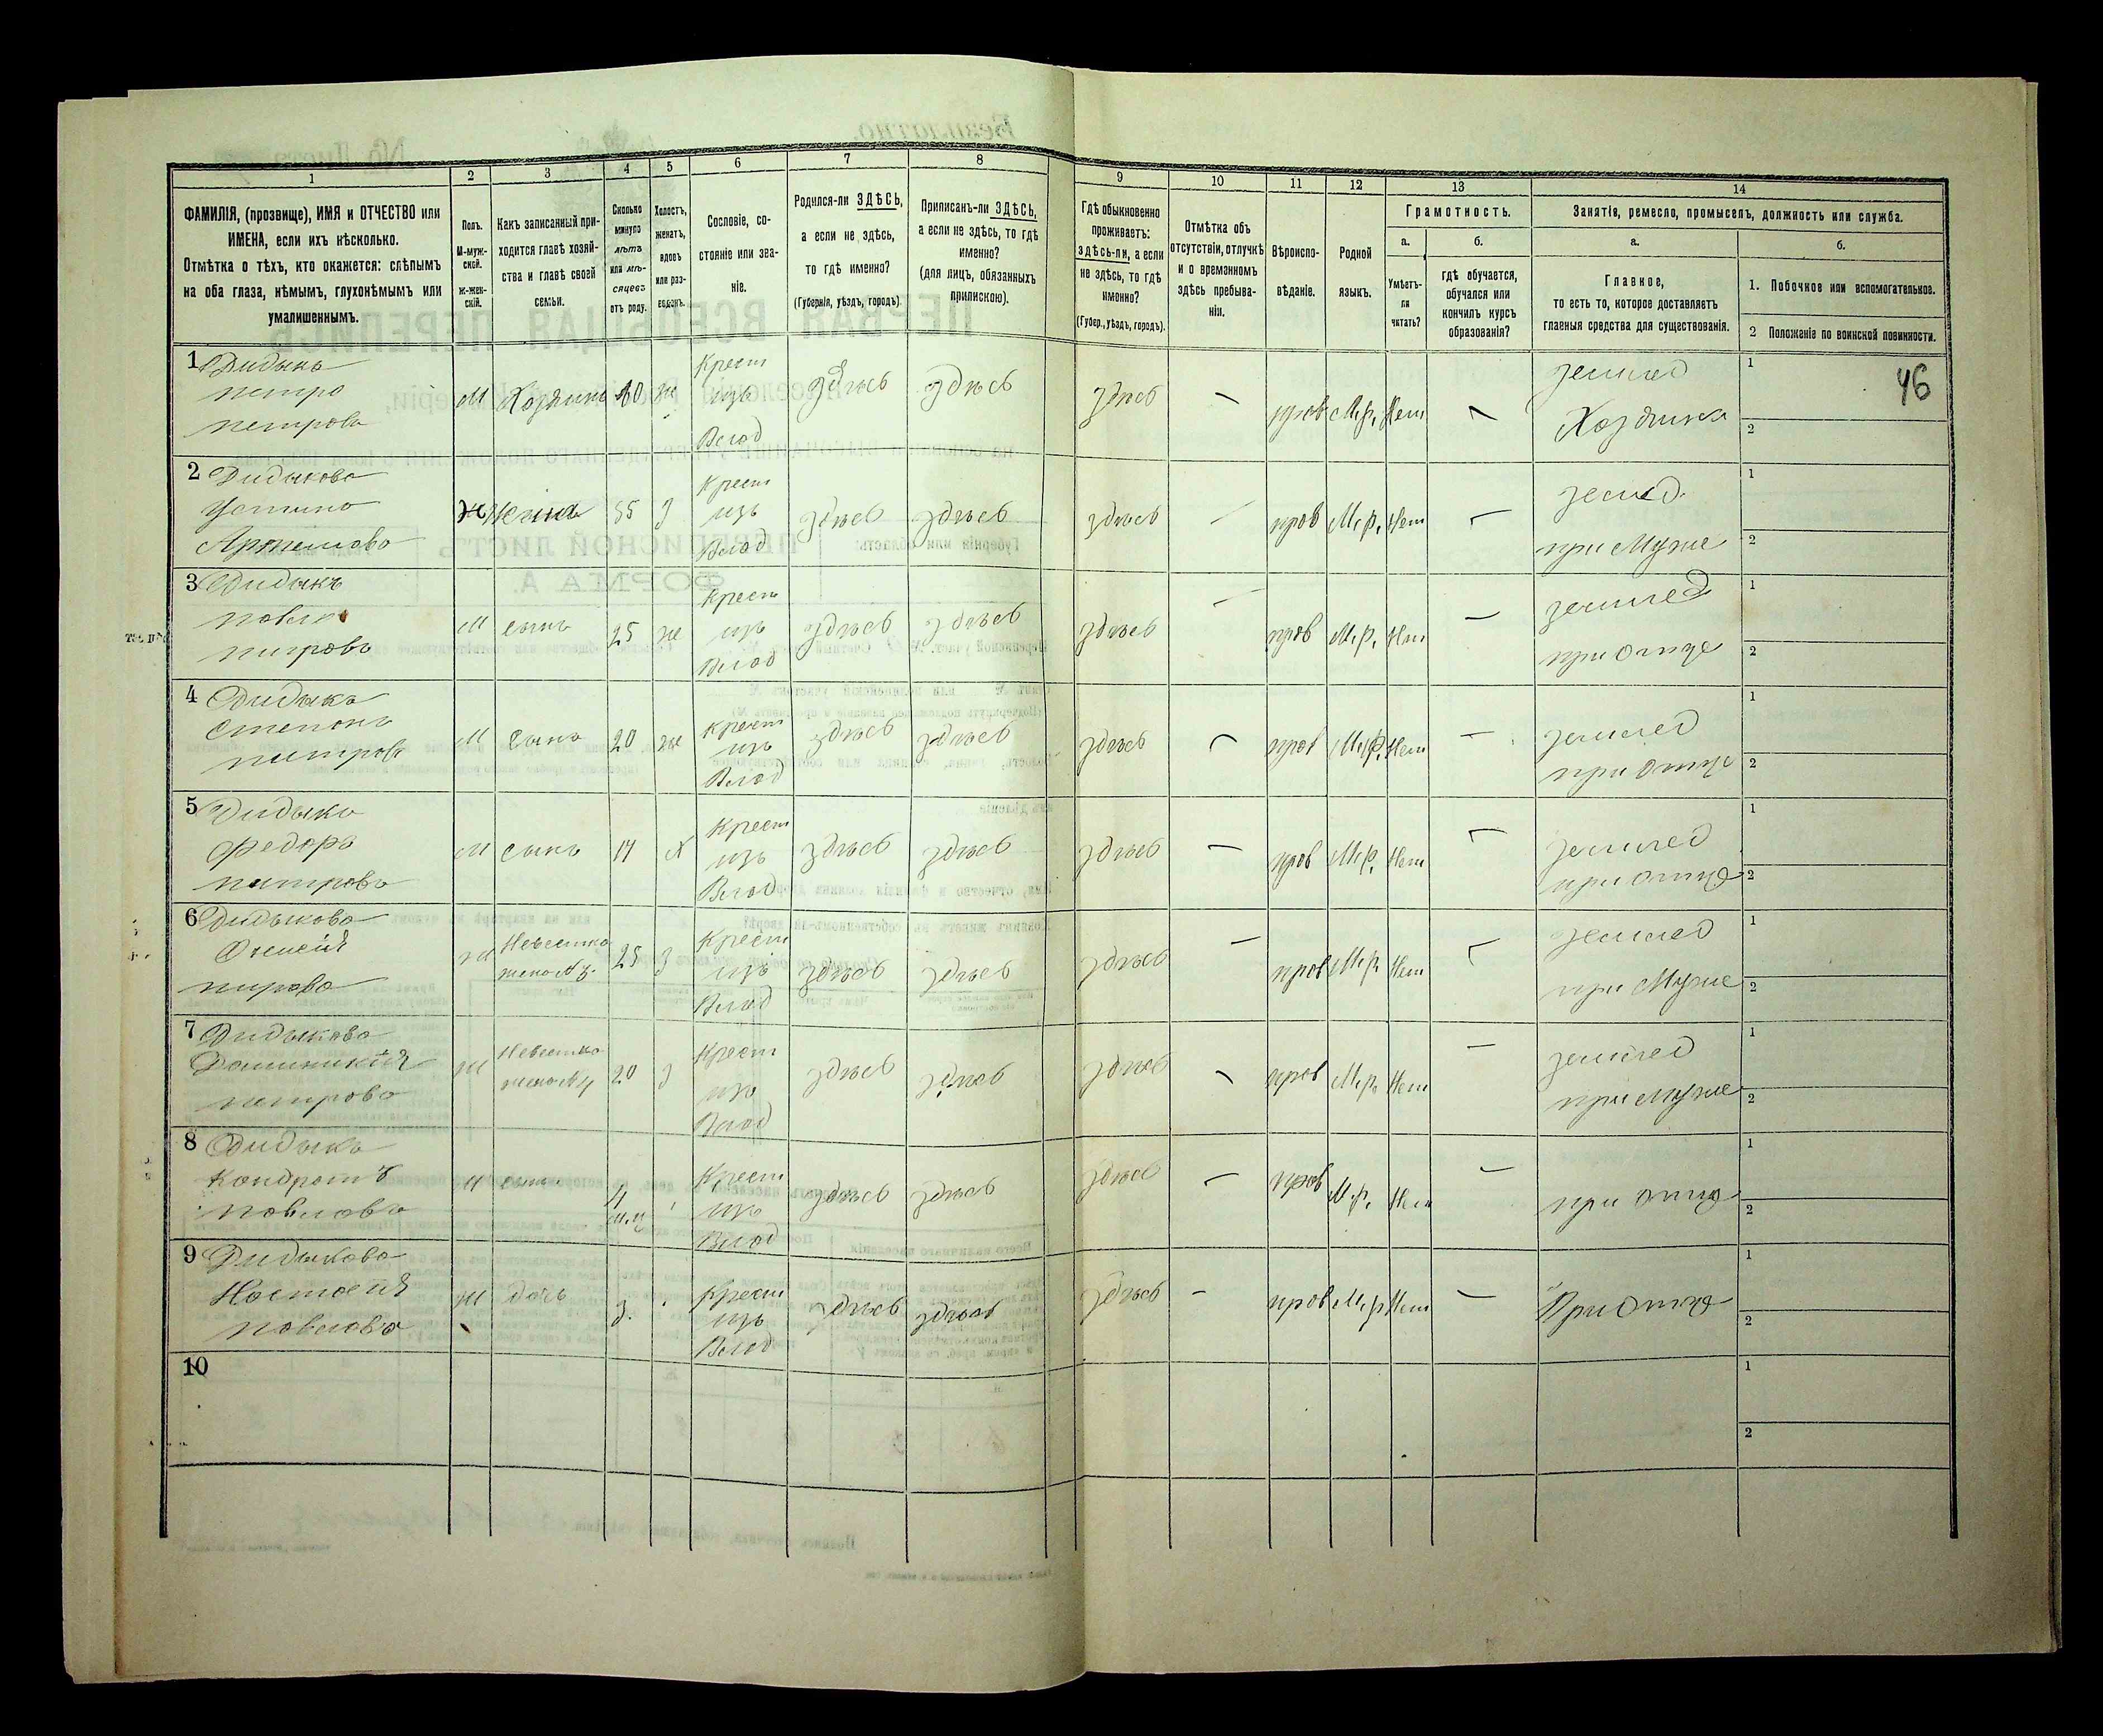 1 2 3 4 5 6 7 8 9 10 11 12 13 14
ФАМИЛІЯ, (прозвище), ИМЯ и ОТЧЕСТВО или ИМЕНА, если ихъ нѣсколько.
Отмѣтка о тѣхъ, кто окажется: слѣпымъ на оба глаза, нѣмымъ, глухонѣмымъ или умалишеннымъ.
Полъ.
М-мужской.
ж-женскій.
Какъ записанный приходится главѣ хозяйства и главѣ своей семьи.
Сколько минуло лѣтъ или мѣсяцевъ отъ роду.
Холостъ, женатъ, вдовъ или разведенъ.
Сословіе, состояніе или званіе.
Родился-ли ЗДѢСЬ, а если не здѣсь, то гдѣ именно?
(Губернія, уѣздъ, городъ).
Приписанъ-ли ЗДѢСЬ, а если не здѣсь, то гдѣ именно?
(для лицъ, обязанныхъ припискою).
Гдѣ обыкновенно проживаетъ: здѣсь-ли, а если не здѣсь, то гдѣ именно?
(Губер., уѣздъ, городъ).
Отмѣтка объ отсутствіи, отлучкѣ и о временномъ здѣсь пребываніи.
Вѣроисповѣданіе.
Родной языкъ.
Грамотность.
а.
Умѣетъ-ли читать?
б.
гдѣ обучается, обучался или кончилъ курсъ образованія?
Занятіе, ремесло, промыселъ, должность или служба.
а.
Главное,
то есть то, которое доставляетъ главныя средства для существованія.
б.
1. Побочное или вспомогательное.
2 Положеніе по воинской повинности.
46
1 Дидыкъ
петро
петровъ
М Хозяинъ 60 же Крест изъ Влад здѣсь здѣсь здѣсь — прав М.р. Нет —
землед
Хозяинъ
2 Дидыкова
Устина
Артемова
Ж жена 55 з Крест изъ Влад здѣсь здѣсь здѣсь — прав М.р. Нет —
землед
при Муже
3 Дидыкъ
павло
питровъ
М сынъ 25 же Крест изъ Влад здѣсь здѣсь здѣсь — прав М.р. Нет —
землед
при Отце
4 Дидыкъ
Степанъ
питровъ
М Сынъ 20 же Крест изъ Влад здѣсь здѣсь здѣсь — прав М.р. Нет —
землед
при Отце
5 Дидыкъ
Федоръ
питровъ
М Сынъ 17 Х Крест изъ Влад здѣсь здѣсь здѣсь — прав М.р. Нет —
землед
при Отце
6 Дидыкова
Ж Невестка жена № 3. 25 з Крест изъ Влад здѣсь здѣсь здѣсь — прав М.р. Нет —
землед
при Муже
7 Дидыкова
петрова
Ж Невестка жена № 4 20 з Крест изъ Влад здѣсь здѣсь здѣсь — прав М.р. Нет —
землед
при Муже
8 Дидыкъ
Кондратъ
павловъ
М сынъ 4 Крест изъ Влад здѣсь здѣсь здѣсь — прав М.р. Нет —
при Отце
9 Дидыкова
Настасія
павлова
Ж дочь 3. Крест изъ Влад здѣсь здѣсь здѣсь — прав М.р. Нет —
При Отце
10
1
2